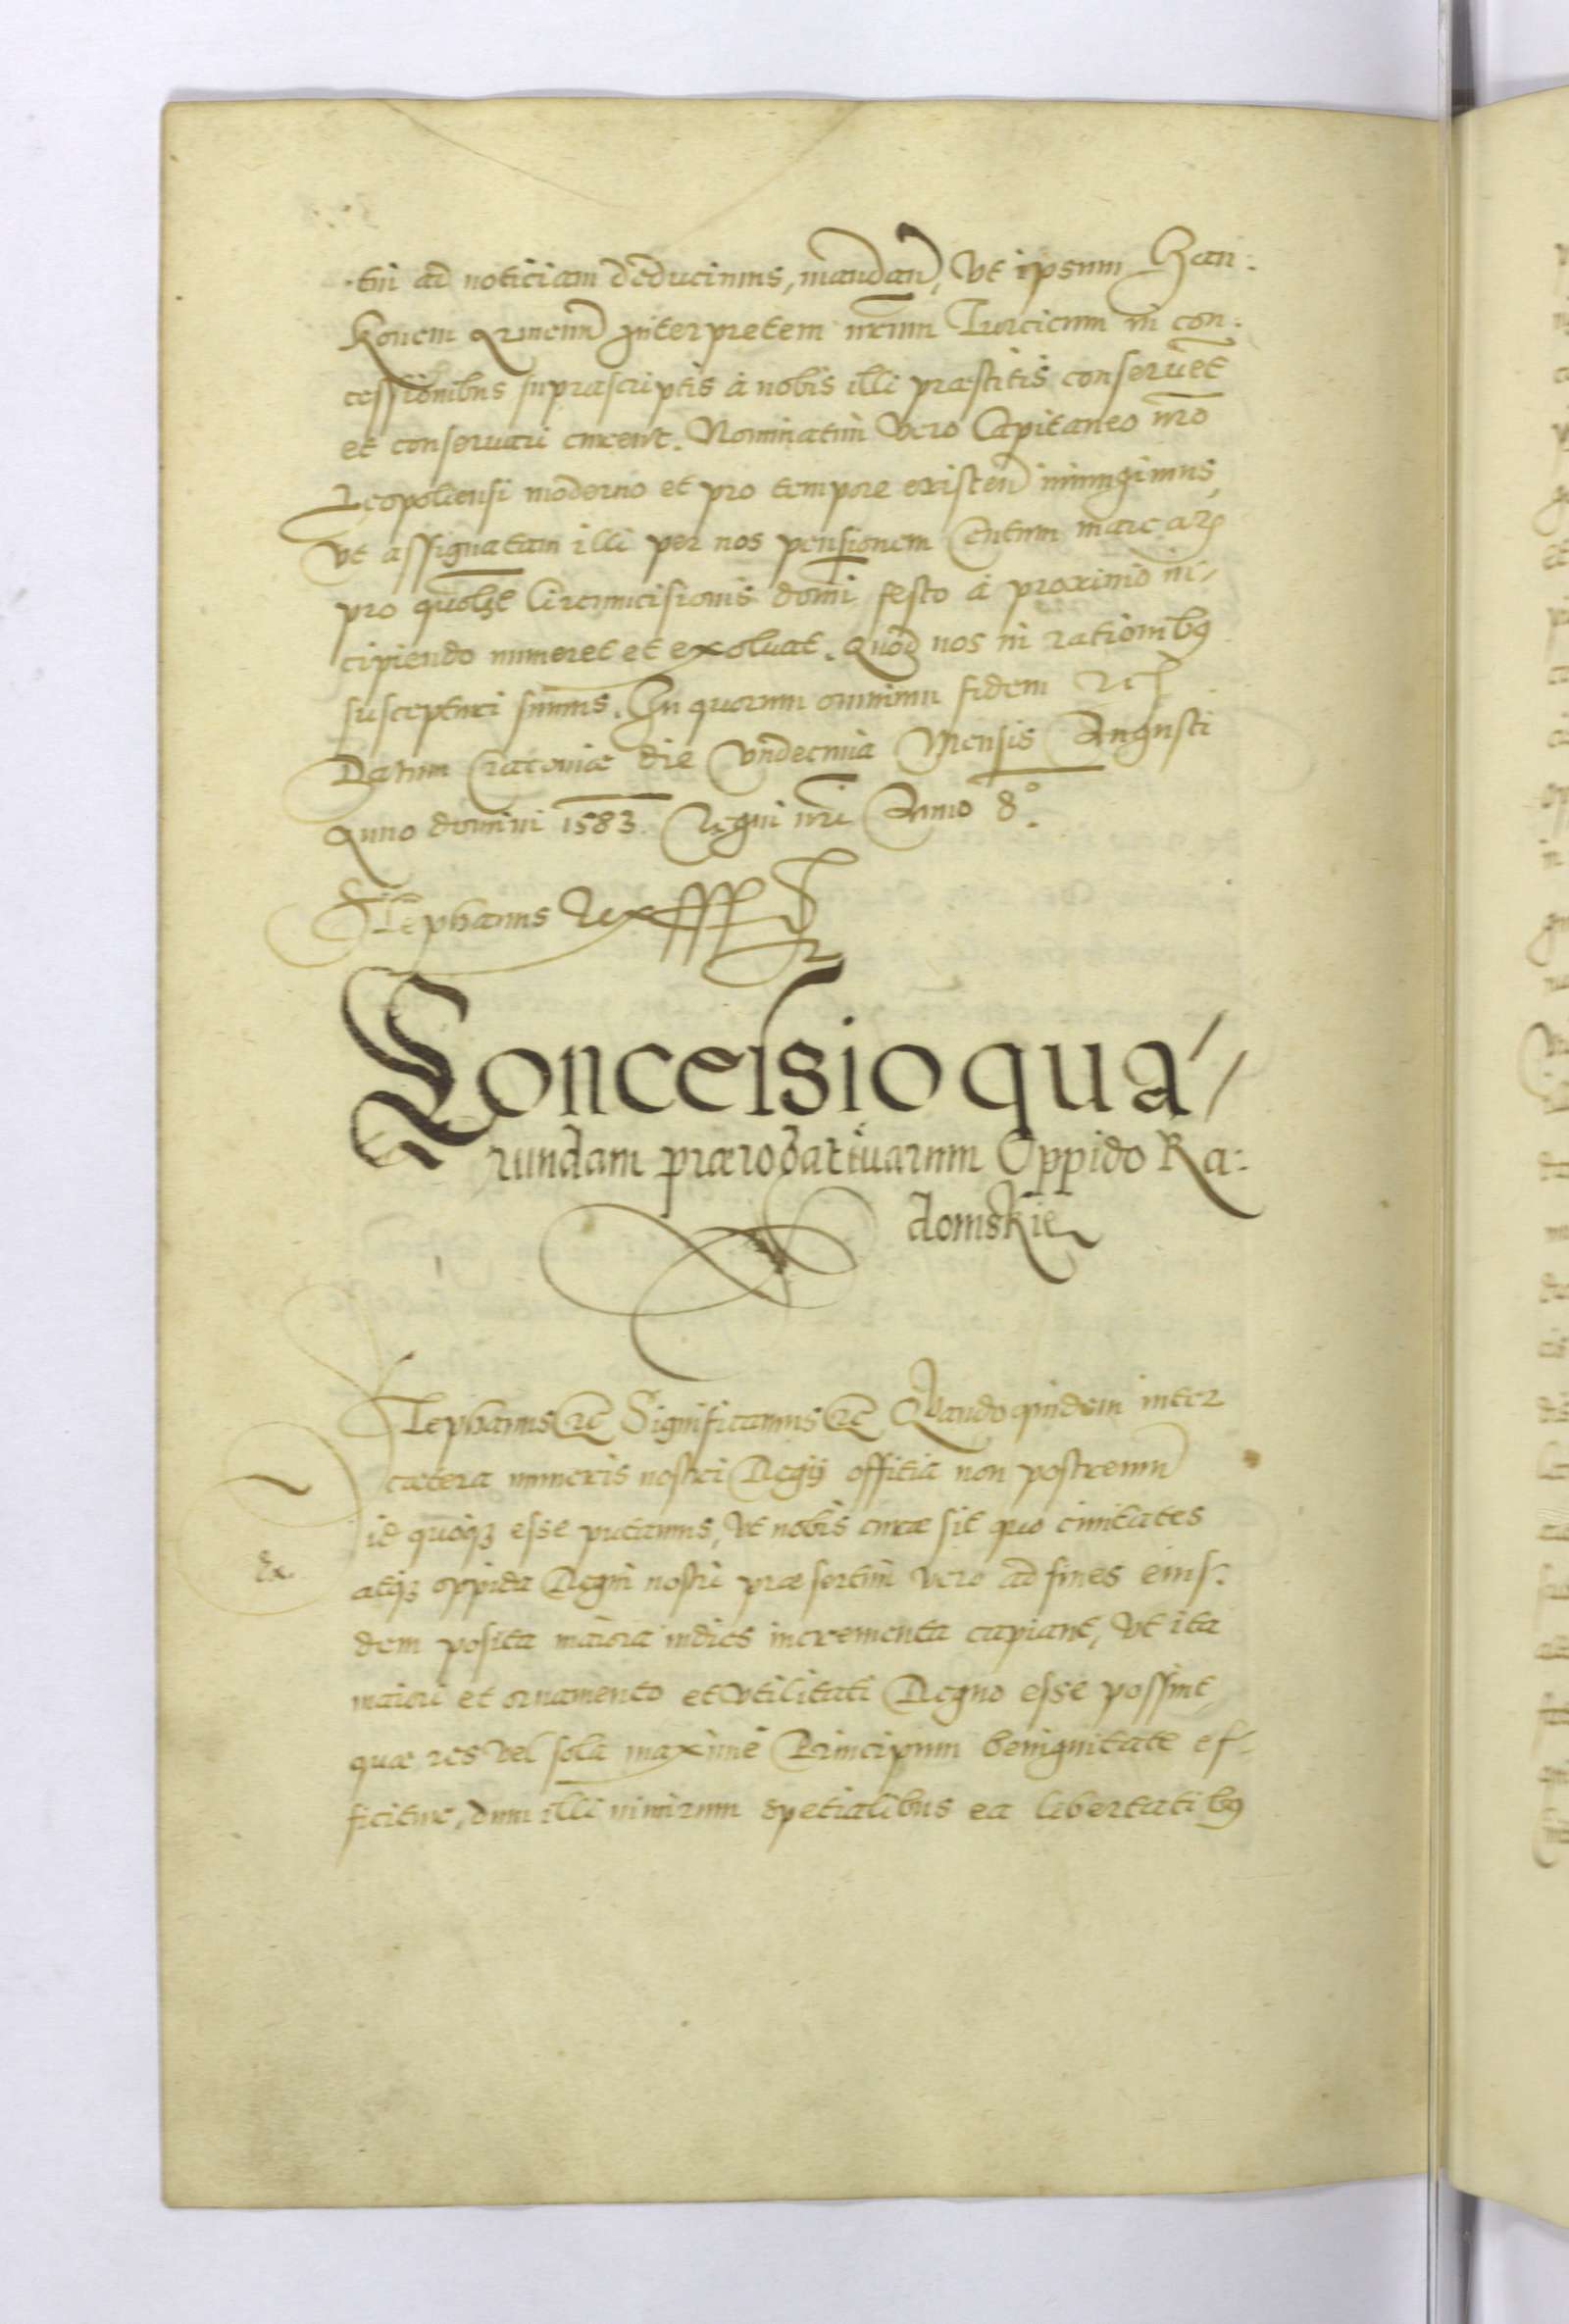 tim ad noticiam deducimus, mandan, Vt ipsum Han:
Konem Interpretem nrum Turcicum in con:
cessionibus suprascriptis à nobis illi præstitis conseruet
et conseruari curent. Nominatim Vero Capitaneo nro
Leopoliensi moderno et pro tempore existen iniungimus,
Vt assignatam illi per nos pensionem Centum marcar
pro quolibet Circumcisionis domi festo à proximo in/
cipiendo numeret et exoluat. Quod nos in rationibꝰ
suscepturi sumus. In quorum omnium fidem Rei
Datum Cracouiæ die Vndecima Mensis Augusti
Anno domini 1583. Regni nri Anno 8º.
Stephanus Rex
Concessio qua/
rundam prærogatiuarum Oppido Ra:
domskie
Stephanus &c Significamus &c Quandoquidem inter
cætera muneris nostri Regij offitia non postremum
id quoqꝫ esse putamus, Vt nobis curæ sit quo ciuitates
atqꝫ oppida Regni nostri præsertim vero ad fines eius:
dem posita maiora indies incrementa capiant, Vt ita
maiori et ornamento et Vtilitati Regno esse possint,
quæ res Vel sola maximè Principum benignitate ef-
ficitur, dum illi nimirum spetialibus ea libertatibꝰ